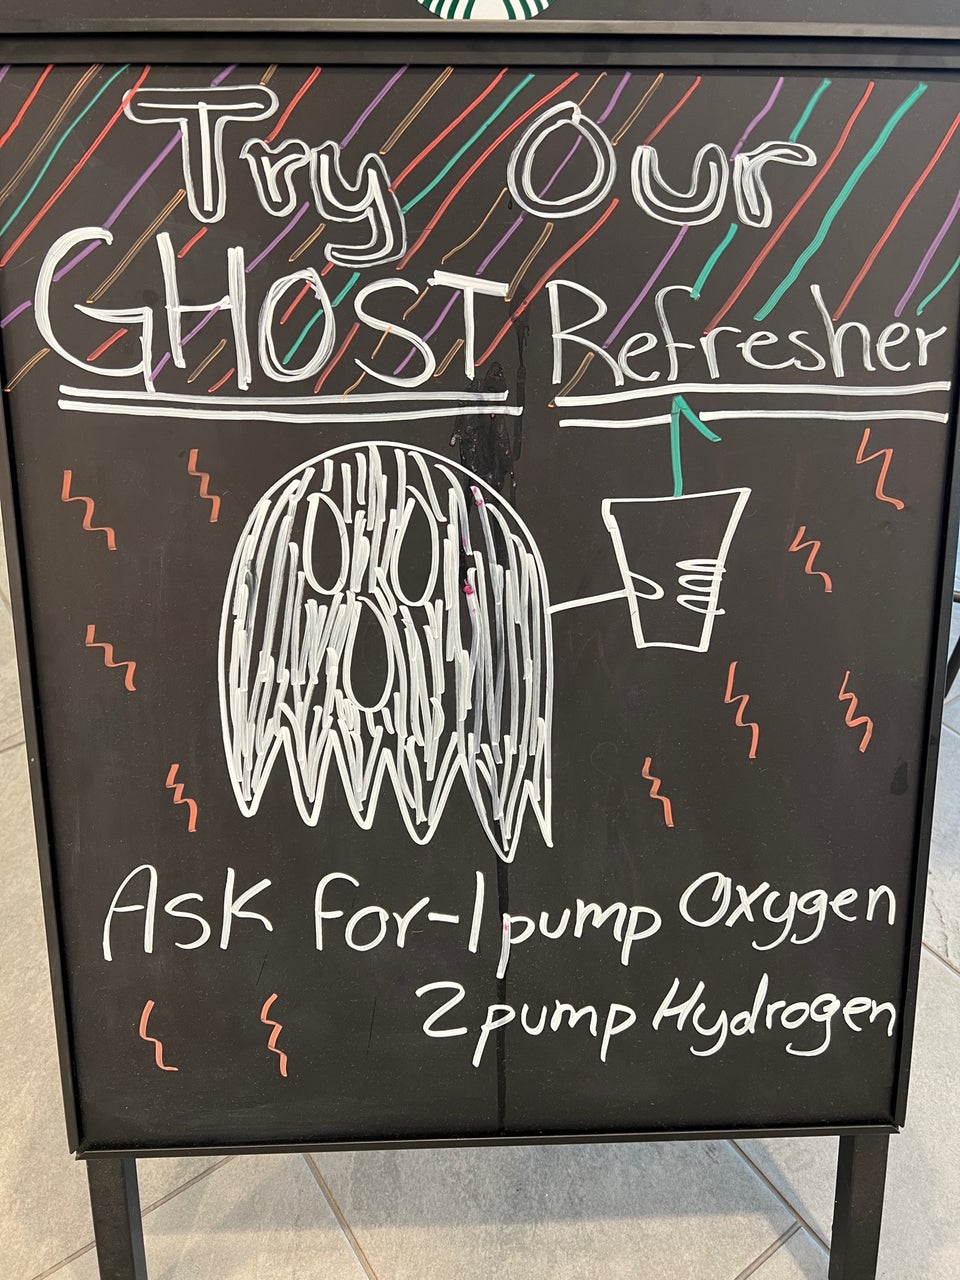 Try Our
GHOST Refresher
Ask For-1 pump Oxygen
2 pump Hydrogen